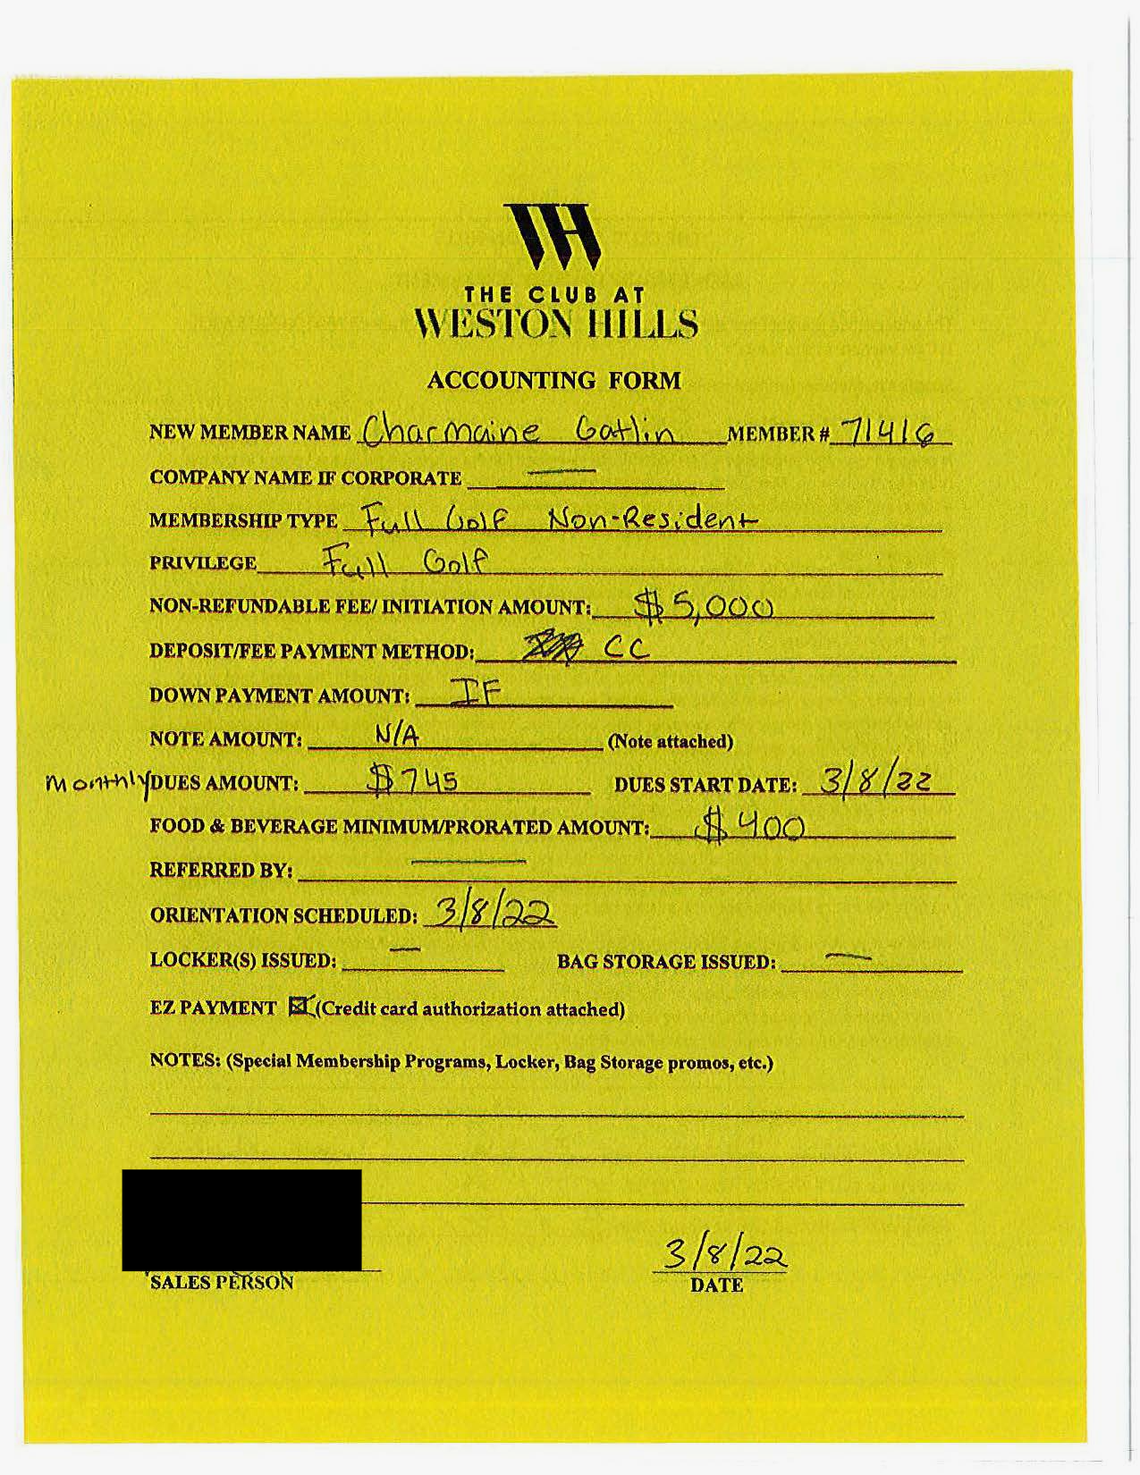 WH
THE CLUB AT
WESTON HILLS
ACCOUNTING FORM
NEW MEMBER NAME Charmaine Gatlin MEMBER # 71416
COMPANY NAME IF CORPORATE —
MEMBERSHIP TYPE Full Golf Non-Resident
PRIVILEGE Full Golf
NON-REFUNDABLE FEE/ INITIATION AMOUNT: $5,000
DEPOSIT/FEE PAYMENT METHOD: CC
DOWN PAYMENT AMOUNT: IF
NOTE AMOUNT: N/A (Note attached)
Monthly DUES AMOUNT: $745 DUES START DATE: 3/8/22
FOOD & BEVERAGE MINIMUM/PRORATED AMOUNT: $400
REFERRED BY: —
ORIENTATION SCHEDULED: 3/8/22
LOCKER(S) ISSUED: — BAG STORAGE ISSUED: —
EZ PAYMENT ☒ (Credit card authorization attached)
NOTES: (Special Membership Programs, Locker, Bag Storage promos, etc.)
3/8/22
SALES PERSON DATE